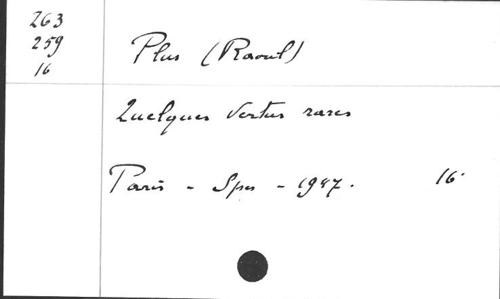 263
259
16
Plus (Raoul)
Quelques vertus rares
Paris - Spes - 1947. 16°